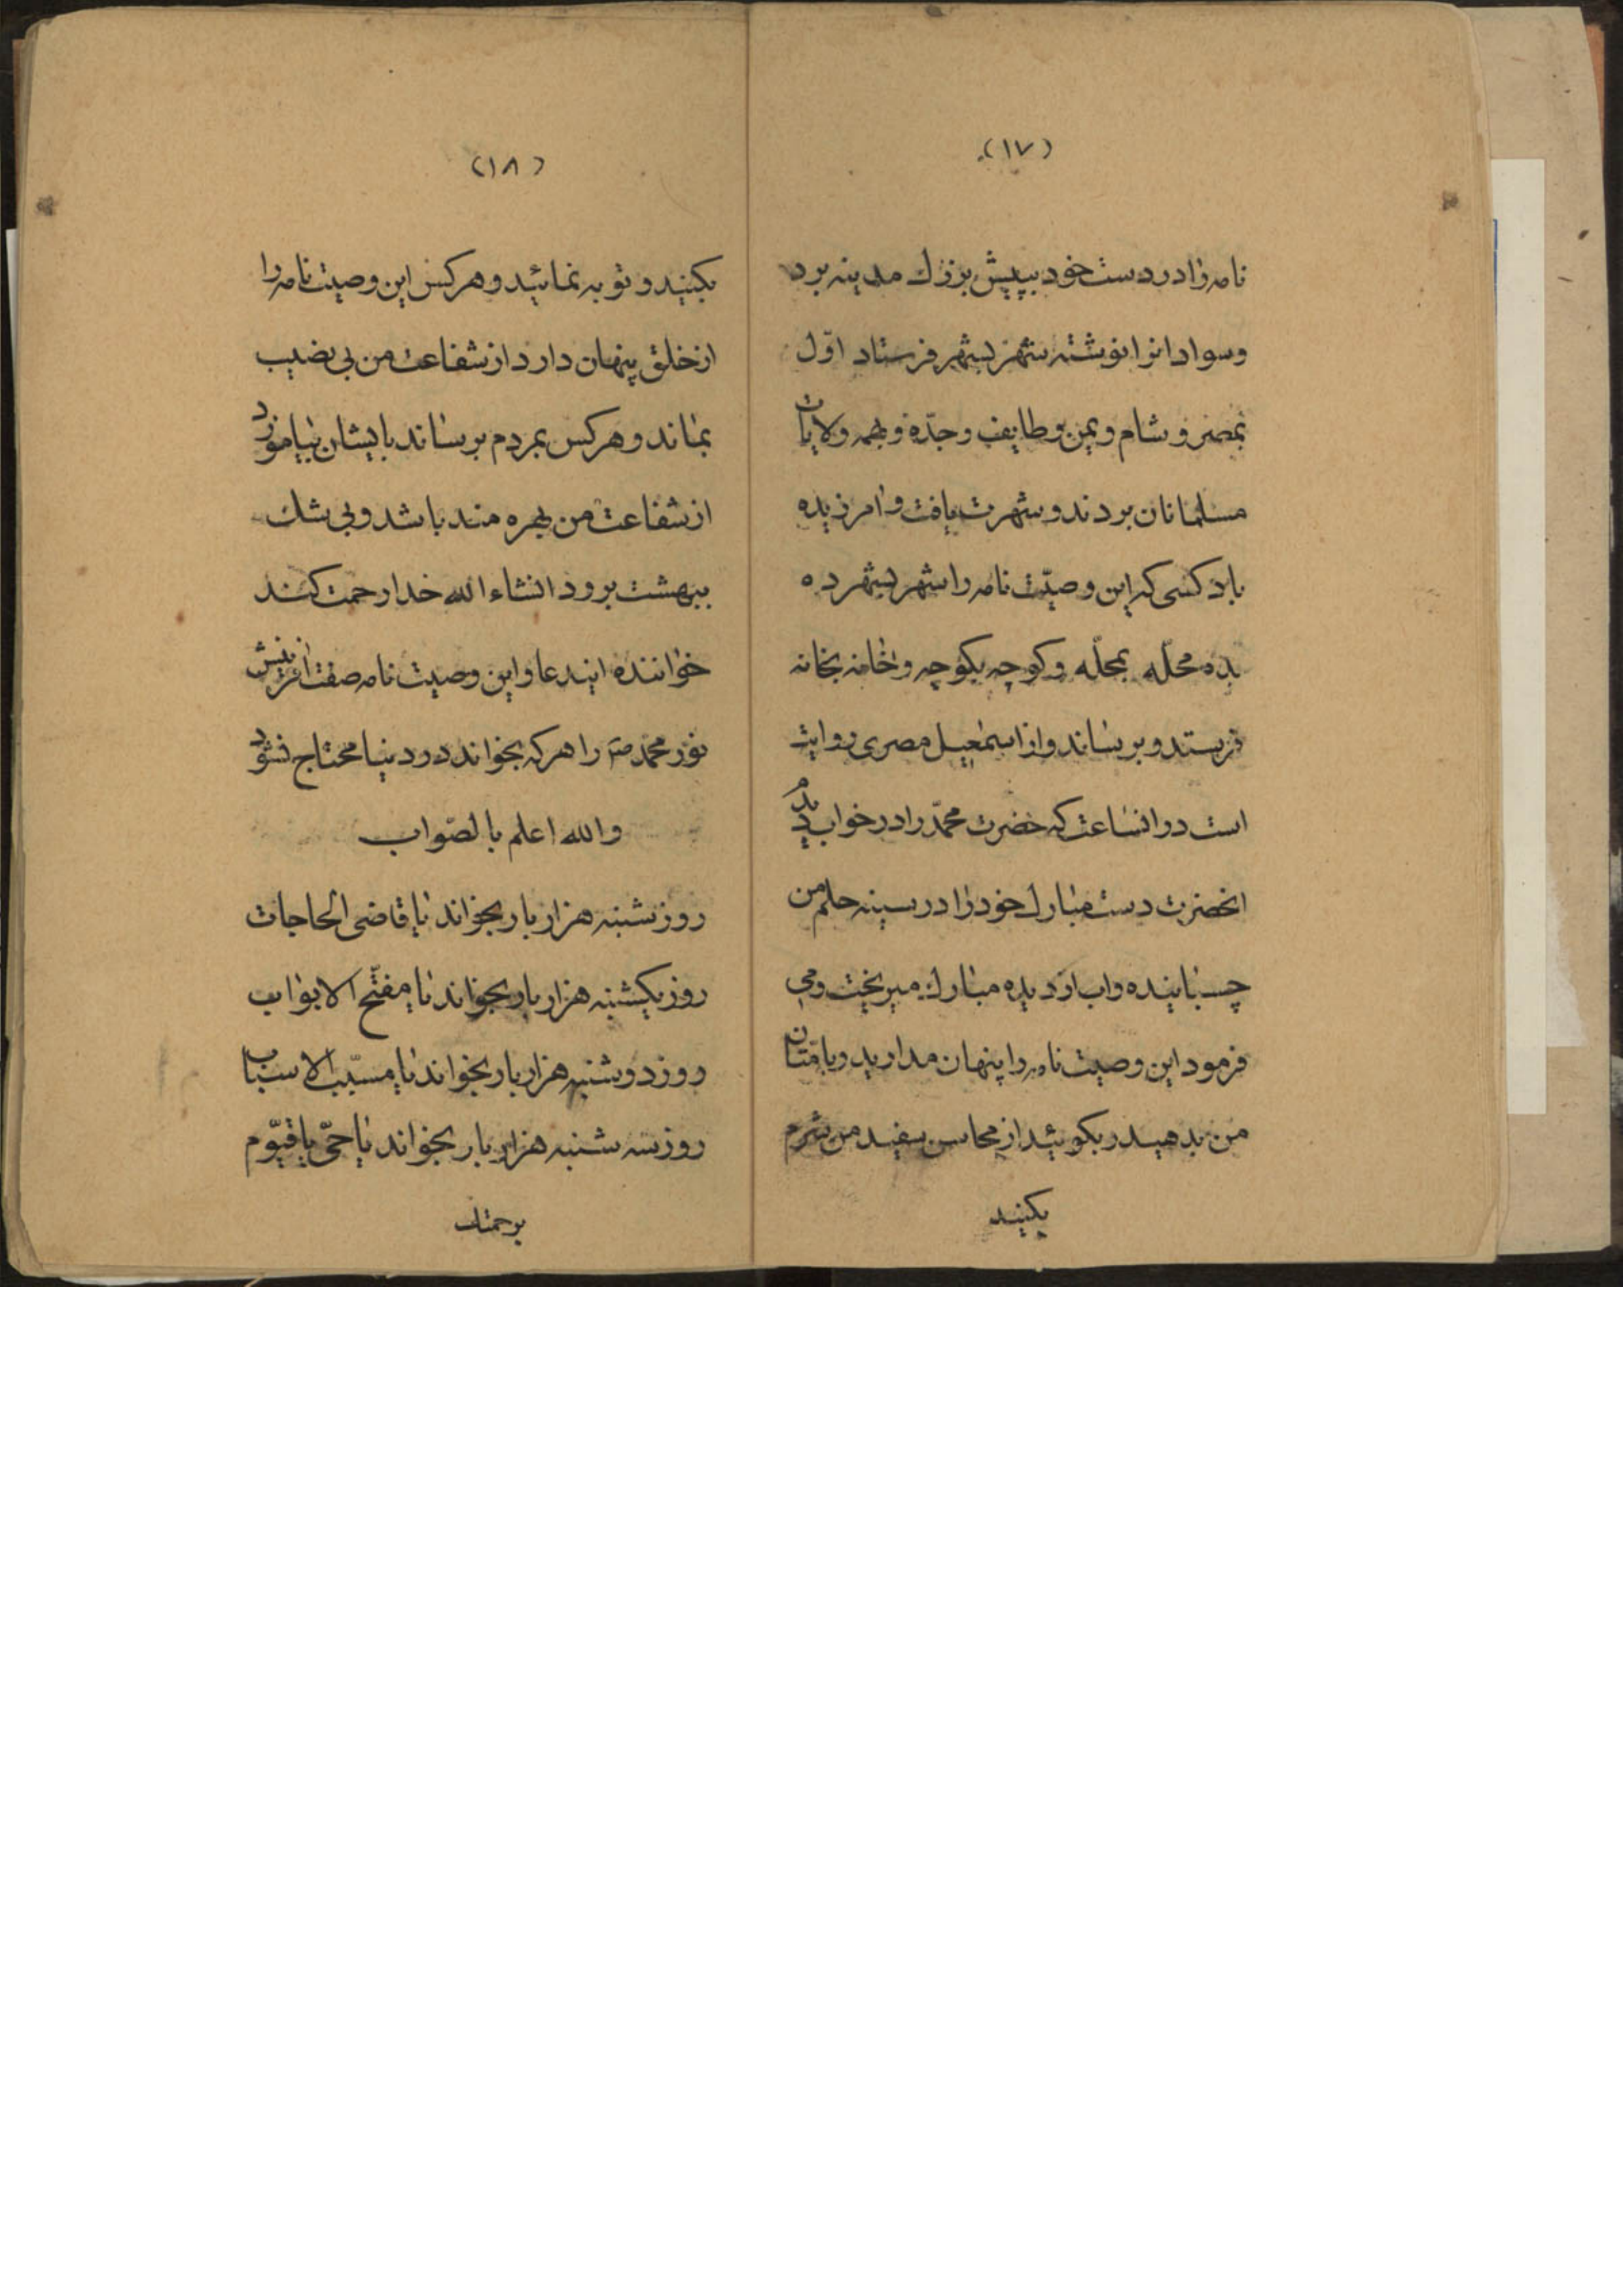 (۱۷)
نامه را در دست خود بپیش بزرك مدینه برد
و سواد انرا نوشته شهر بشهر فرستاد اوّل
بمصر و شام و یمن و طایف و جدّه و بهمه ولایات
مسلمانان بردند و شهرت یافت و امرزیده
باد کسی که این وصیّت نامه را شهر بشهر ده
بده محلّه بمحلّه و کوچه بکوچه و خانه بخانه
فرستد و برساند و از اسمعیل مصری روایت
است در انساعت که حضرت محمّد را در خواب دیدم
انحضرت دست مبارك خود را در سینه حلم من
چسبانیده و اب از دیده مبارك میریخت و می
فرمود این وصیت نامه را پنهان مدارید و بامّتان
من بدهید و بکوئید از محاسن سفید من شرم
بکنید
(۱۸)
بکنید و توبه نمائید و هر کس این وصیت نامه را
از خلق پنهان دارد از شفاعت من بی نصیب
بماند و هر کس بمردم برساند با یشان بیاموزد
از شفاعت من بهره مند باشد و بی شك
ببهشت برود انشاء الله خدا رحمت کند
خواننده ایندعا و این وصیت نامه صفت افرینش
نور محمد صۤ را هر که بخواند در دنیا محتاج نشود
و الله اعلم بالصّواب
روز شنبه هزار بار بخواند یا قاضی الحاجات
روز یکشنبه هزار بار بخواند یا مفتّح الابواب
روز دوشنبه هزار بار بخواند یا مسبّب الاسباب
روز سه شنبه هزار بار بخواند یا حیّ یا قیّوم
برحمتك